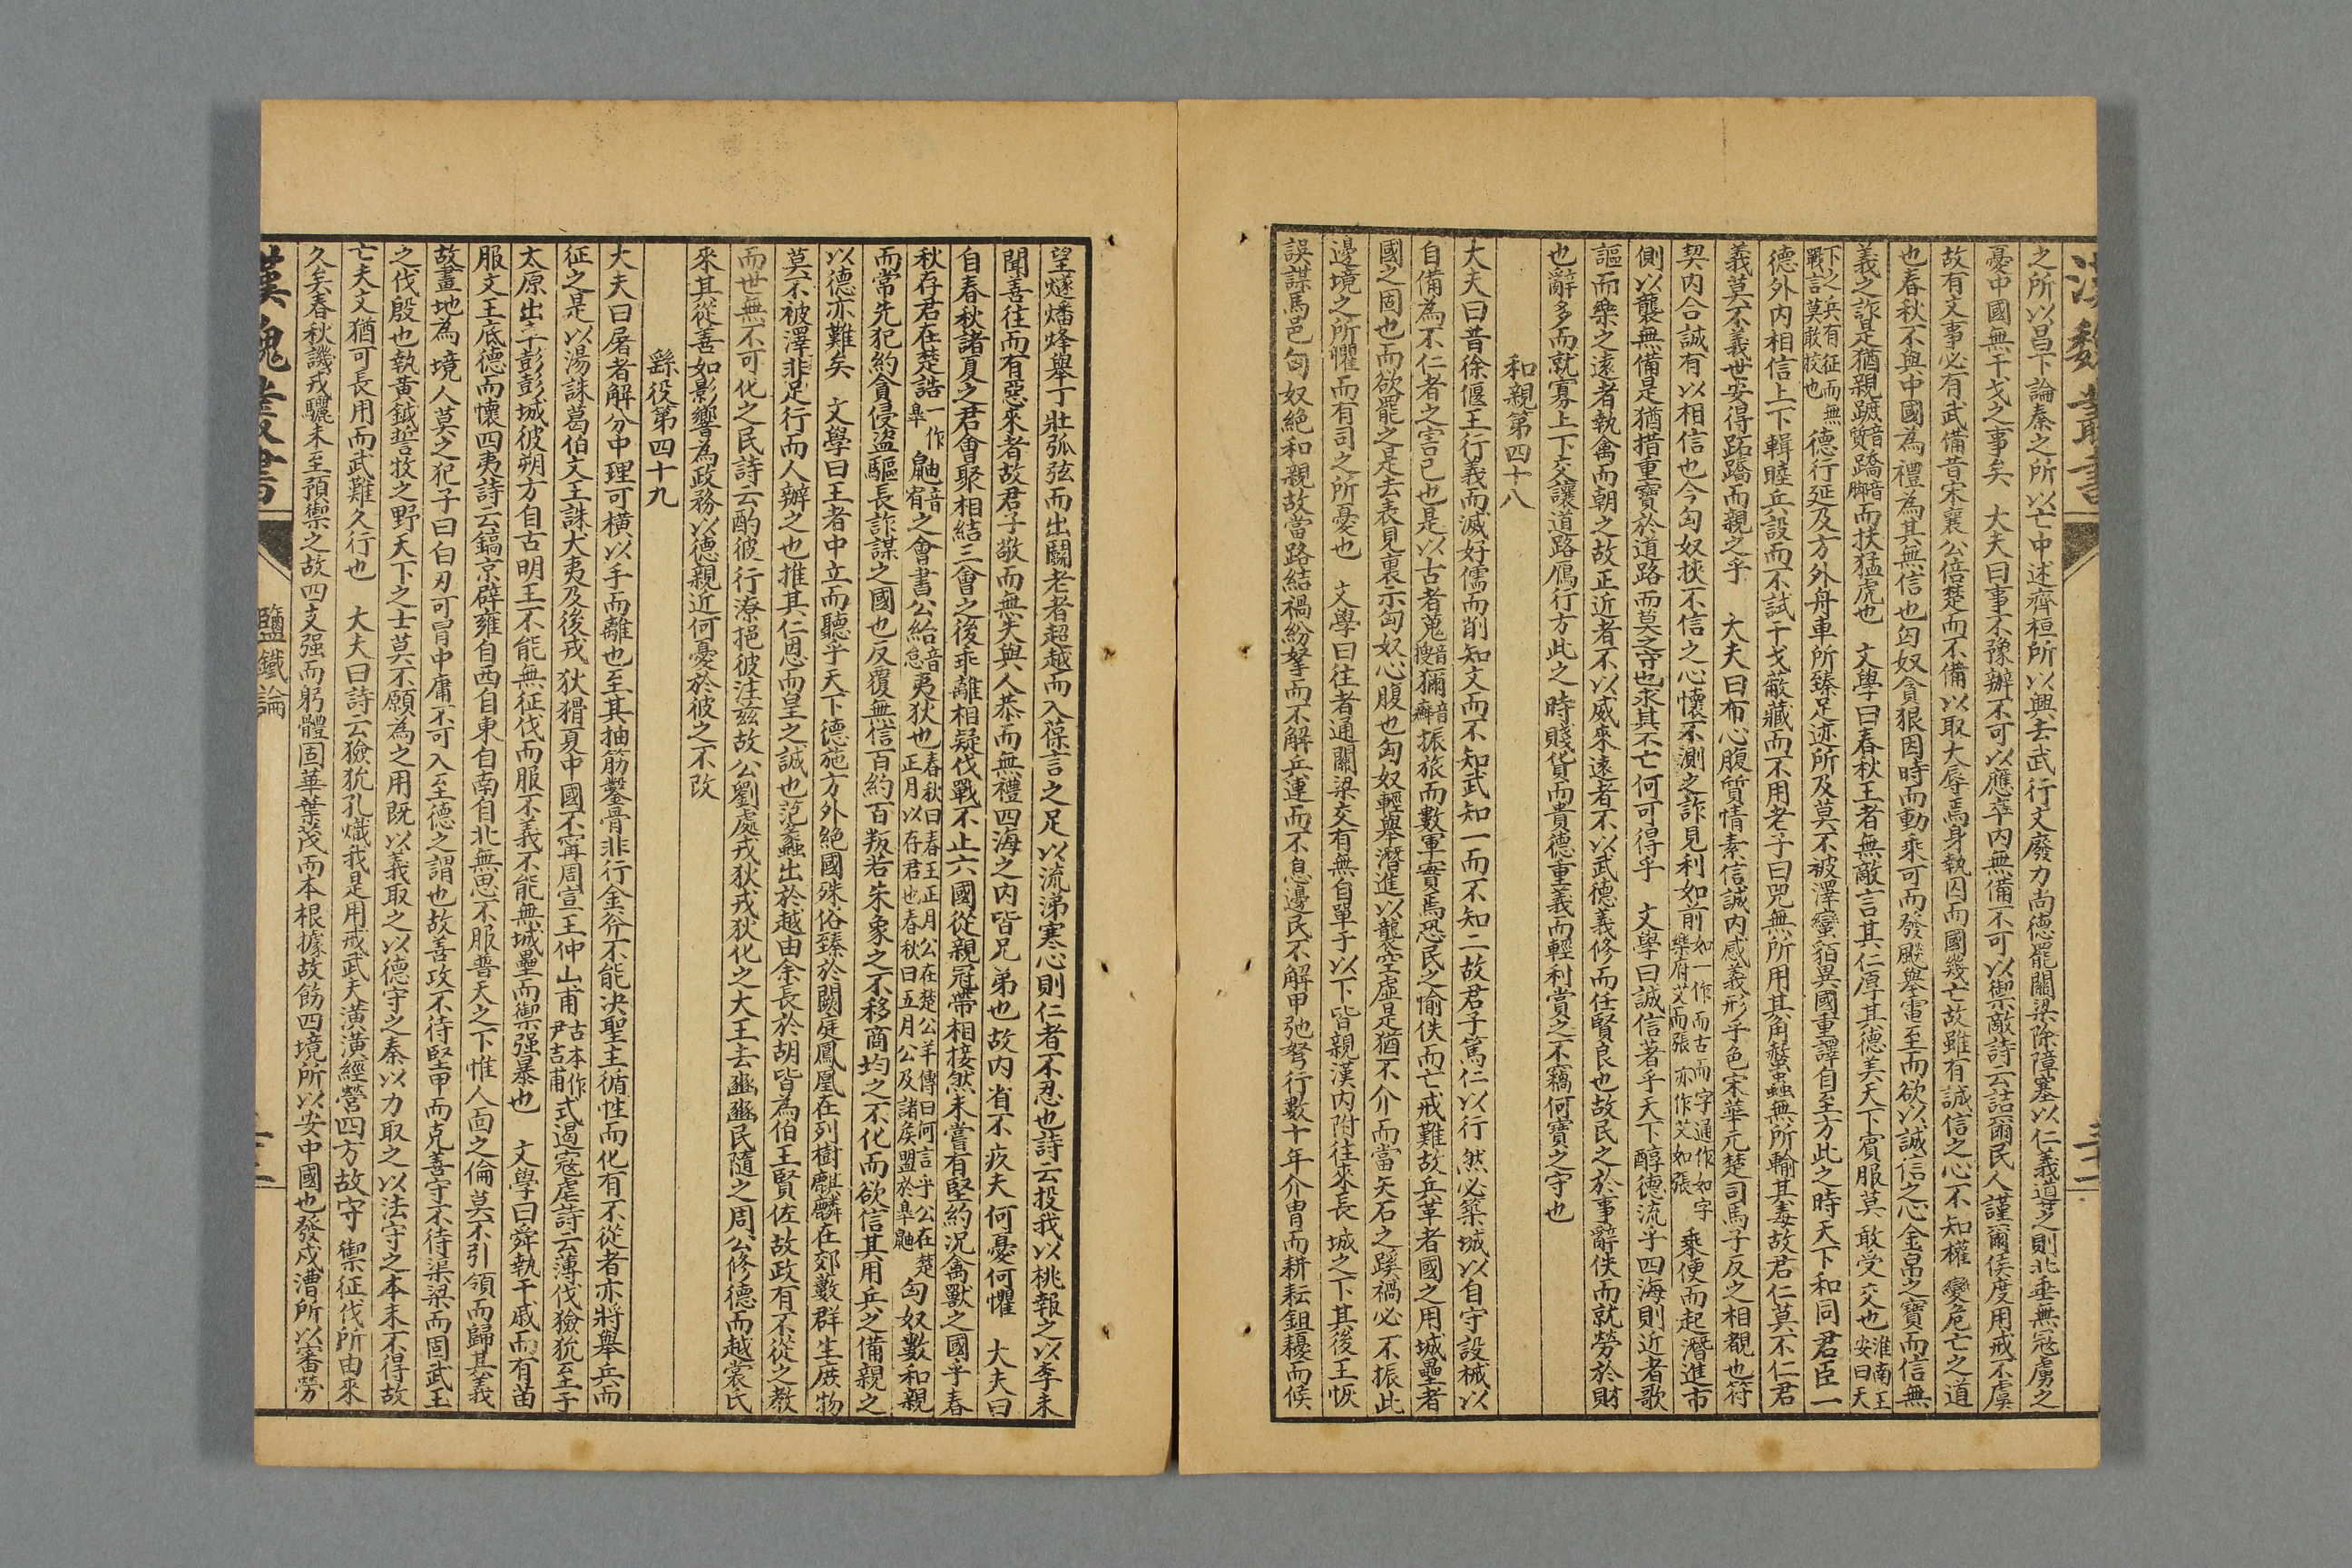 漢魏叢書
之所以昌下論秦之所以亡中述齊桓所以興去武行文廢力尚德罷關梁除障塞以仁義導之則北垂無寇虜之
憂中國無干戈之事矣　大夫曰事不豫辦不可以應卒內無備不可以禦敵詩云誥爾民人謹爾侯度用戒不虞
故有文事必有武備昔宋襄公倍楚而不備以取大辱焉身執囚而國幾亡故雖有誠信之心不知權變危亡之道
也春秋不與中國為禮為其無信也匈奴貪狼因時而動乘可而發飈舉電至而欲以誠信之心金帛之寶而信無
義之詐是猶親蹠音質蹻音腳而扶猛虎也　文學曰春秋王者無敵言其仁厚其德美天下賓服莫敢受交也淮南王安曰天
下之兵有征而無戰言莫敢挍也德行延及方外舟車所臻足迹所及莫不被澤蠻貊異國重譯自至方此之時天下和同君臣一
德外內相信上下輯睦兵設而不試干戈蔽藏而不用老子曰兕無所用其角螫蟲無所輸其毒故君仁莫不仁君
義莫不義世安得跖蹻而親之乎　大夫曰布心腹質情素信誠內感義形乎色宋華元楚司馬子反之相覩也符
契內合誠有以相信也今匈奴挾不信之心懷不測之詐見利如前如一作而古而字通作如字樂府艾而張亦作艾如張乘便而起潛進市
側以襲無備是猶措重寶於道路而莫之守也求其不亡何可得乎　文學曰誠信著乎天下醇德流乎四海則近者歌
謳而樂之遠者執禽而朝之故正近者不以威來遠者不以武德義修而任賢良也故民之於事辭佚而就勞於財
也辭多而就寡上下交讓道路鴈行方此之時賤貨而貴德重義而輕利賞之不竊何寶之守也
和親第四十八
大夫曰昔徐偃王行義而滅好儒而削知文而不知武知一而不知二故君子篤仁以行然必築城以自守設械以
自備為不仁者之害己也是以古者蒐音搜獮音癬振旅而數軍實焉恐民之愉佚而亡戒難故兵革者國之用城壘者
國之固也而欲罷之是去表見裏示匈奴心腹也匈奴輕舉潛進以襲空虛是猶不介而當矢石之蹊禍必不振此
邊境之所懼而有司之所憂也　文學曰往者通關梁交有無自單于以下皆親漢內附往來長城之下其後王恢
誤謀馬邑匈奴絕和親故當路結禍紛拏而不解兵連而不息邊民不解甲弛弩行數十年介冑而耕耘鉏耰而候
望燧燔烽舉丁壯弧弦而出鬬老者超越而入葆言之足以流涕寒心則仁者不忍也詩云投我以桃報之以李未
聞善往而有惡來者故君子敬而無失與人恭而無禮四海之內皆兄弟也故內省不疚夫何憂何懼　大夫曰
自春秋諸夏之君會聚相結三會之後乖離相疑伐戰不止六國從親冠帶相接然未嘗有堅約況禽獸之國乎春
秋存君在楚誥一作臯鼬音宥之會書公紿音怠夷狄也春秋曰春王正月公在楚公羊傳曰何言乎公在楚正月以存君也春秋曰五月公及諸侯盟於臯鼬匈奴數和親
而常先犯約貪侵盜驅長詐謀之國也反覆無信百約百叛若朱象之不移商均之不化而欲信其用兵之備親之
以德亦難矣　文學曰王者中立而聽乎天下德施方外絕國殊俗臻於闕庭鳳凰在列樹麒麟在郊藪群生庶物
莫不被澤非足行而人辦之也推其仁恩而皇之誠也范蠡出於越由余長於胡皆為伯王賢佐故政有不從之教
而世無不可化之民詩云酌彼行潦挹彼注茲故公劉處戎狄戎狄化之大王去豳豳民隨之周公修德而越裳氏
來其從善如影響為政務以德親近何憂於彼之不改
繇役第四十九
大夫曰屠者解分中理可橫以手而離也至其抽筋鑿骨非行金斧不能決聖主循性而化有不從者亦將舉兵而
征之是以湯誅葛伯文王誅犬夷及後戎狄猾夏中國不寧周宣王仲山甫古本作尹吉甫式遏寇虐詩云薄伐獫狁至于
太原出車彭彭城彼朔方自古明王不能無征伐而服不義不能無城壘而禦强暴也　文學曰舜執干戚而有苗
服文王底德而懷四夷詩云鎬京辟雍自西自東自南自北無思不服普天之下惟人面之倫莫不引領而歸其義
故畫地為境人莫之犯子曰白刃可冒中庸不可入至德之謂也故善政不待堅甲而克善守不待渠梁而固武王
之伐殷也執黃鉞誓牧之野天下之士莫不願為之用既以義取之以德守之秦以力取之以法守之本末不得故
亡夫文猶可長用而武難久行也　大夫曰詩云獫狁孔熾我是用戒武夫潢潢經營四方故守禦征伐所由來
久矣春秋譏戎驪未至預禦之故四支强而躬體固華葉茂而本根據故飭四境所以安中國也發戍漕所以審勞
漢魏叢書
鹽鐵論